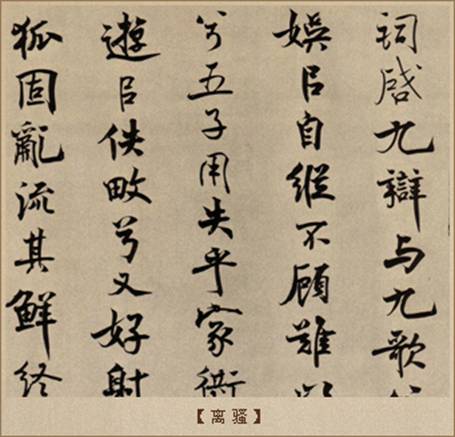 詞啓九辯与九歌
娛㠯自縱不顧難
兮五子用失乎家衖
遊㠯佚畋兮又好射
狐固亂流其鮮終
【离骚】